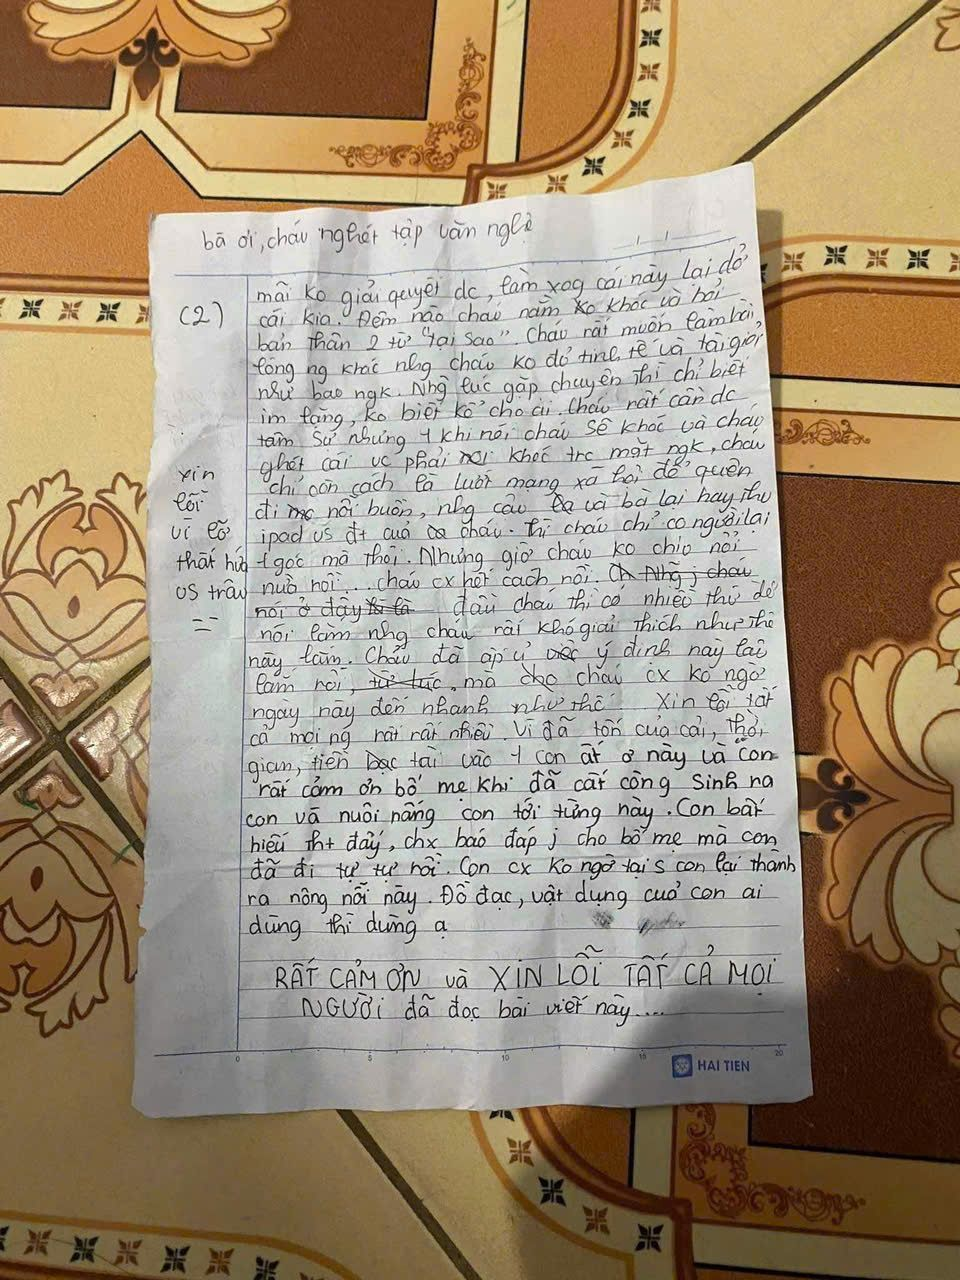 bà ơi, cháu nghét tập văn nghệ
(2)
mãi ko giải quyết dc, làm xog cái này lại dở
cái kia. Đêm nào cháu nằm ko khóc và hỏi
bản thân 2 từ "tại sao". Cháu rất muốn làm hài
lòng ng khác nhg cháu ko đủ tinh tế và tài giỏi
như bao ngk. Nhg lúc gặp chuyện thì chỉ biết
im lặng, ko biết kể cho ai. Cháu rất cần dc
tâm sự nhưng 1 khi nói cháu sẽ khóc và cháu
ghét cái vc phải khóc trc mặt ngk, cháu
chỉ còn cách là lướt mạng xã hội để quên
đi nỗi buồn, nhg cậu và bà lại hay thu
ipad vs đt của cháu. Thì cháu chỉ có người lại
1 góc mà thôi. Nhưng giờ cháu ko chịu nổi
nuà rồi... cháu cx hết cách rồi. Ch Nhg j cháu
nói ở đây thì là đầu cháu thì có nhiều thứ để
nói lắm nhg cháu rất khó giải thích như thế
này lắm. Cháu đã ấp ủ ý định này lâu
lắm rồi, mà cháu cx ko ngờ
ngày này đến nhanh như thế... Xin lỗi tất
cả mọi ng rất rất nhiều. Vì đã tốn của cải, thời
gian, tiền bạc tài vào 1 con ất ơ này và con
rất cảm ơn bố mẹ khi đã cất công sinh ra
con và nuôi nấng con tới từng này. Con bất
hiếu tht đấy, chx báo đáp j cho bố mẹ mà con
đã đi tự tự rồi. Con cx ko ngờ tại s con lại thành
ra nông nỗi này. Đồ đạc, vật dụng cuả con ai
dùng thì dùng ạ
RẤT CẢM ƠN và XIN LỖI TẤT CẢ MỌI
NGƯỜI đã đọc bài viết này....
xin
lỗi
vì lỡ
thất hứa
vs trâu
0 5 10 15 20
HAI TIEN